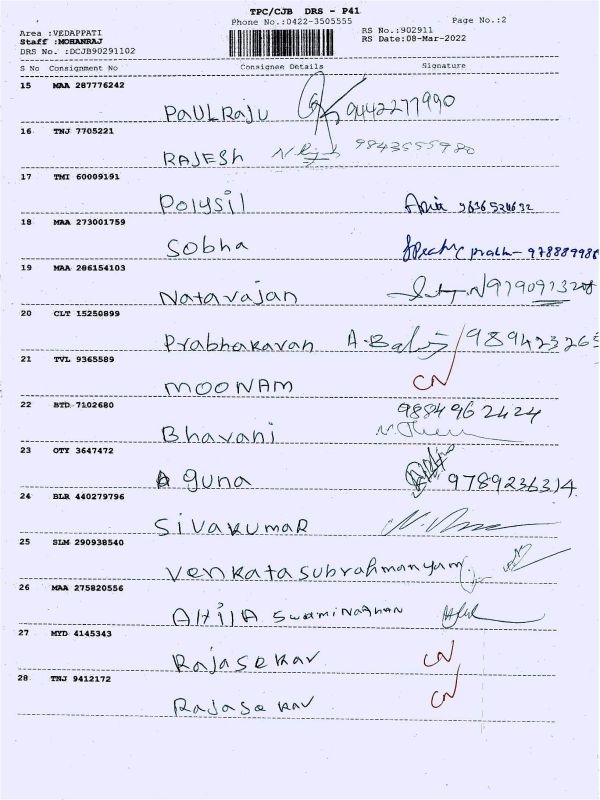 TPC/CJB DRS - P41
Phone No.:0422-3505555 Page No.:2
Area :VEDAPPATI RS No.:902911
Staff :MOHANRAJ RS Date:08-Mar-2022
DRS No. :DCJB90291102
S No Consignment No Consignee Details Signature
15 MAA 287776242
PAULRAJU 9442277990
16 TNJ 7705221
RAJESH 9843655980
17 TMI 60009191
Polysil
18 MAA 273001759
Sobha
19 MAA 286154103
Natarajan
20 CLT 15250899
Prabhakaran
21 TVL 9365589
MOONAM CN
22 BTD 7102680
9884962424
Bhavani
23 OTY 3647472
guna 9789236314
24 BLR 440279796
SIVAKUMAR
25 SLM 290938540
Venkatasubrahmanyam
26 MAA 275820556
Swaminathan
27 MYD 4145343
Rajasekar CN
28 TNJ 9412172
Rajasekar CN